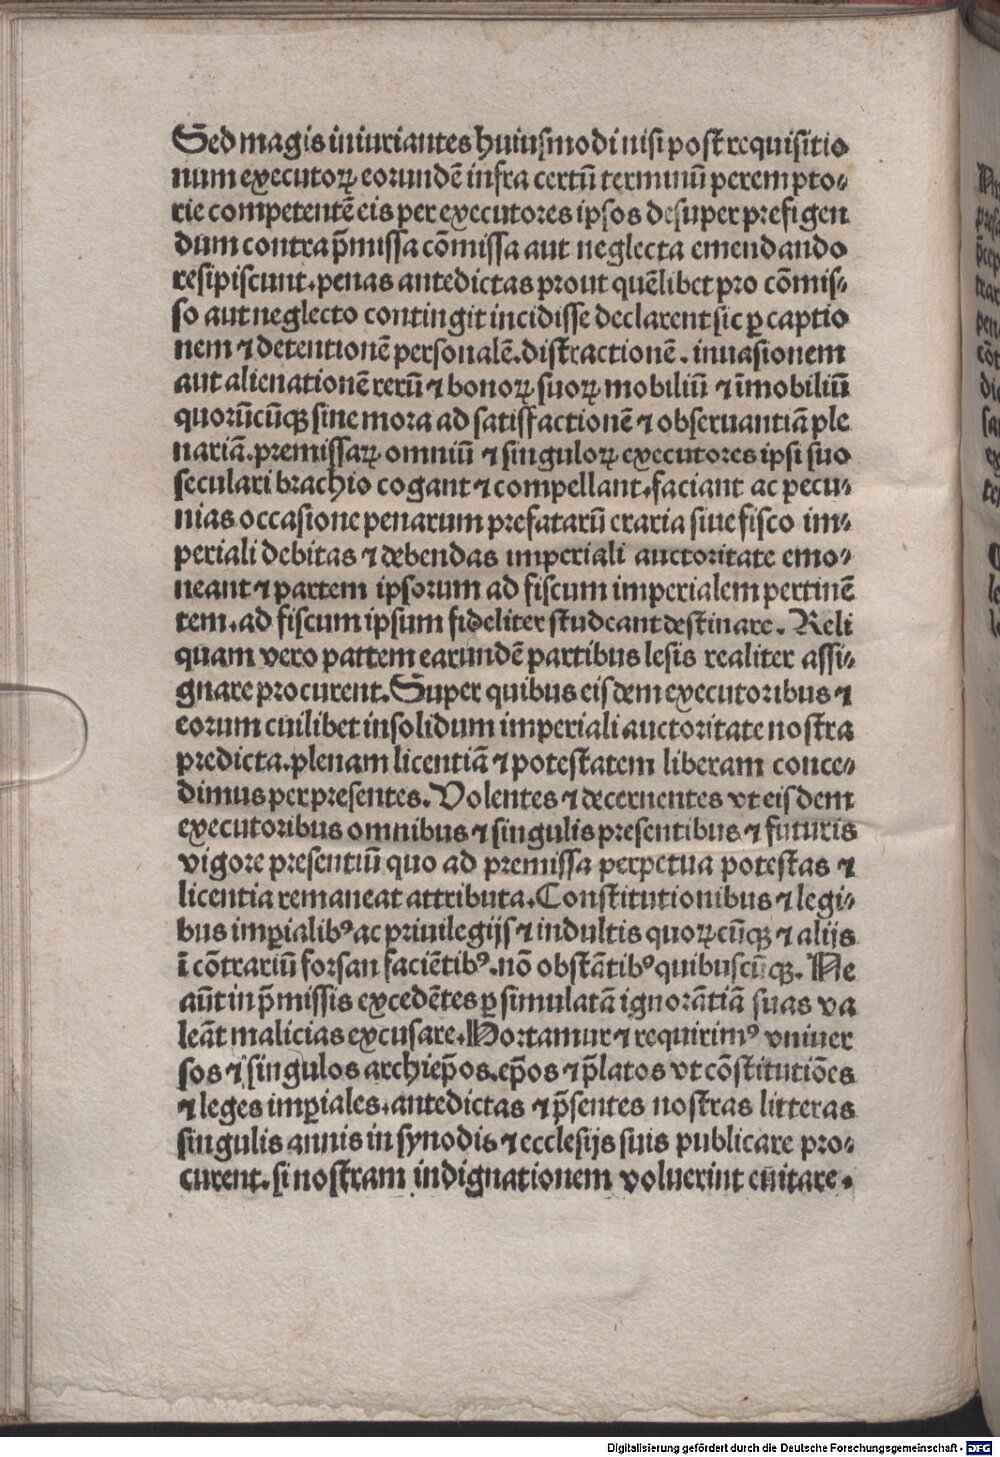 Sed magis iniuriantes huiuſmodi niſi poſt requiſitio
num executoꝝ eorundē infra certū terminū perempto⸗
rie competentē eis per executores ipſos deſuper prefigen
dum contra p̄miſſa cōmiſſa aut neglecta emendando
reſipiſcunt.penas antedictas prout quēlibet pro cōmiſ⸗
ſo aut neglecto contingit incidiſſe declarent ſic ꝑ captio
nem ⁊ detentionē perſonalē.diſtractionē. inuaſionem
aut alienationē rerū ⁊ bonoꝝ ſuoꝝ mobiliū ⁊ īmobiliū
quorūcūqꝫ ſine mora ad ſatiſfactionē ⁊ obſeruantiā ple
nariā.premiſſaꝝ omniū ⁊ ſinguloꝝ executores ipſi ſuo
ſeculari brachio cogant ⁊ compellant.faciant ac pecu⸗
nias occaſione penarum prefatarū eraria ſiue fiſco im⸗
periali debitas ⁊ debendas imperiali auctoritate emo⸗
neant ⁊ partem ipſorum ad fiſcum imperialem pertinē
tem.ad fiſcum ipſum fideliter ſtudeant deſtinare. Reli
quam vero pattem earundē partibus leſis realiter aſſi⸗
gnare procurent.Super quibus eiſdem executoribus ⁊
eorum cuilibet inſolidum imperiali auctoritate noſtra
predicta.plenam licentiā ⁊ poteſtatem liberam conce⸗
dimus per preſentes.Volentes ⁊ decernentes vt eiſdem
executoribus omnibus ⁊ ſingulis preſentibus ⁊ futuris
vigore preſentiū quo ad premiſſa perpetua poteſtas ⁊
licentia remaneat attributa.Conſtitutionibus ⁊ legi⸗
bus imꝑialibꝰ ac priuilegijs ⁊ indultis quoꝝcūqꝫ ⁊ alijs
ī cōtrariū forſan faciētibꝰ.nō obſtātibꝰ quibuſcūqꝫ. Ne
aūt in p̄miſſis excedētes ꝑ ſimulatā ignorātiā ſuas va
leāt malicias excuſare.Hortamur ⁊ requirimꝰ vniuer
ſos ⁊ ſingulos archiep̄os.ep̄os ⁊ p̄latos vt cōſtitutiōes
⁊ leges imꝑiales.antedictas ⁊ p̄ſentes noſtras litteras
ſingulis annis in ſynodis ⁊ eccleſijs ſuis publicare pro⸗
curent.ſi noſtram indignationem voluerint euitare.
Digitalisierung gefördert durch die Deutsche Forschungsgemeinschaft - DFG